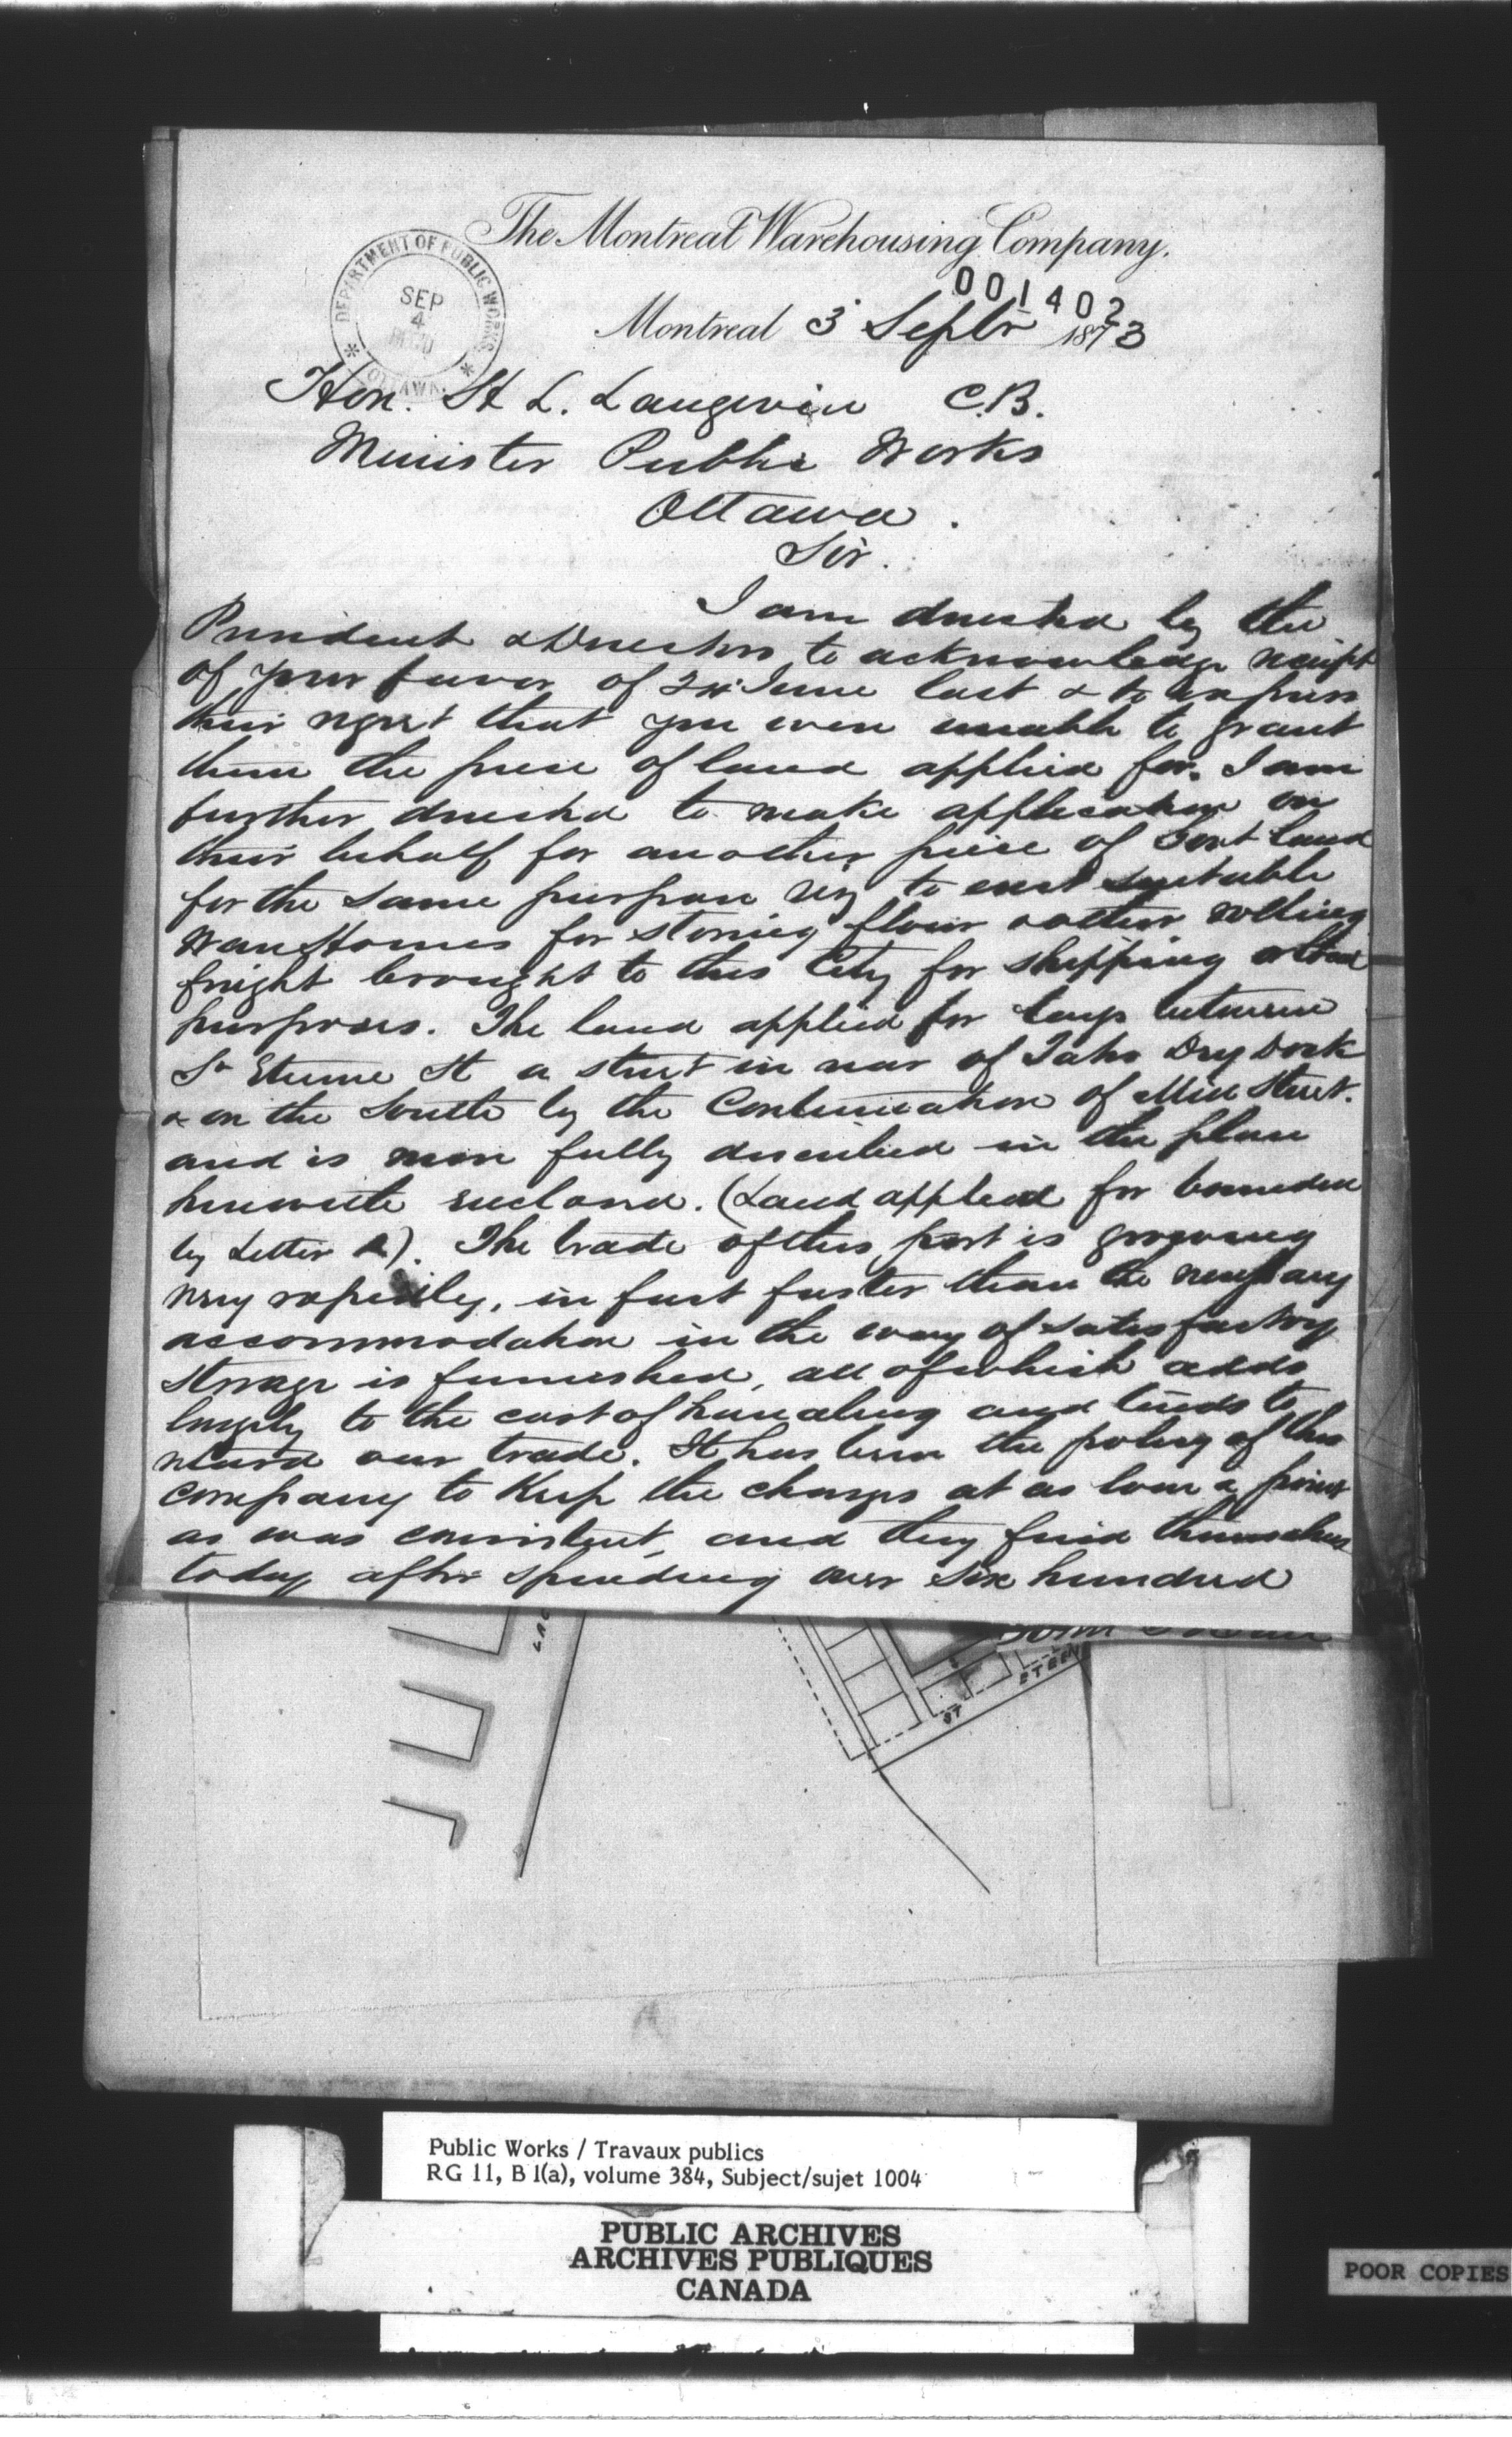 The Montreal Warehousing Company.
001402
DEPARTMENT OF PUBLIC WORKS
SEP
4
OTTAWA
Montreal 3 Septbr 1873
Hon. H L. Langevin C.B.
Minister Public Works
Ottawa.
Sir.
I am directed by the
President & Directors to acknowledge receipt
of your favor of 24 June last & to express
their regret that you were unable to grant
them the piece of land applied for. I am
further directed to make application on
their behalf for another piece of Govt land
for the same purpose viz to erect suitable
WareHouses for storing flour & other rolling
freight brought to this City for shipping & other
purposes. The land applied for lays between
St Etienne St a street in rear of Tates Dry Dock
& on the South by the Continuation of Mill Street.
and is more fully described in the plan
herewith enclosed. (Land applied for bounded
by Letter A). The trade of this port is growing
very rapidly, in fact faster than the necessary
accommodation in the way of satisfactory
storage is furnished, all of which adds
largely to the cost of handling and tends to
retard our trade. It has been the policy of this
company to Keep the charges at as low a point
as was consistent, and they find themselves
today after spending over Six hundred
ST ETIENNE
Public Works / Travaux publics
RG 11, B 1(a), volume 384, Subject/sujet 1004
PUBLIC ARCHIVES
ARCHIVES PUBLIQUES
CANADA
POOR COPIES